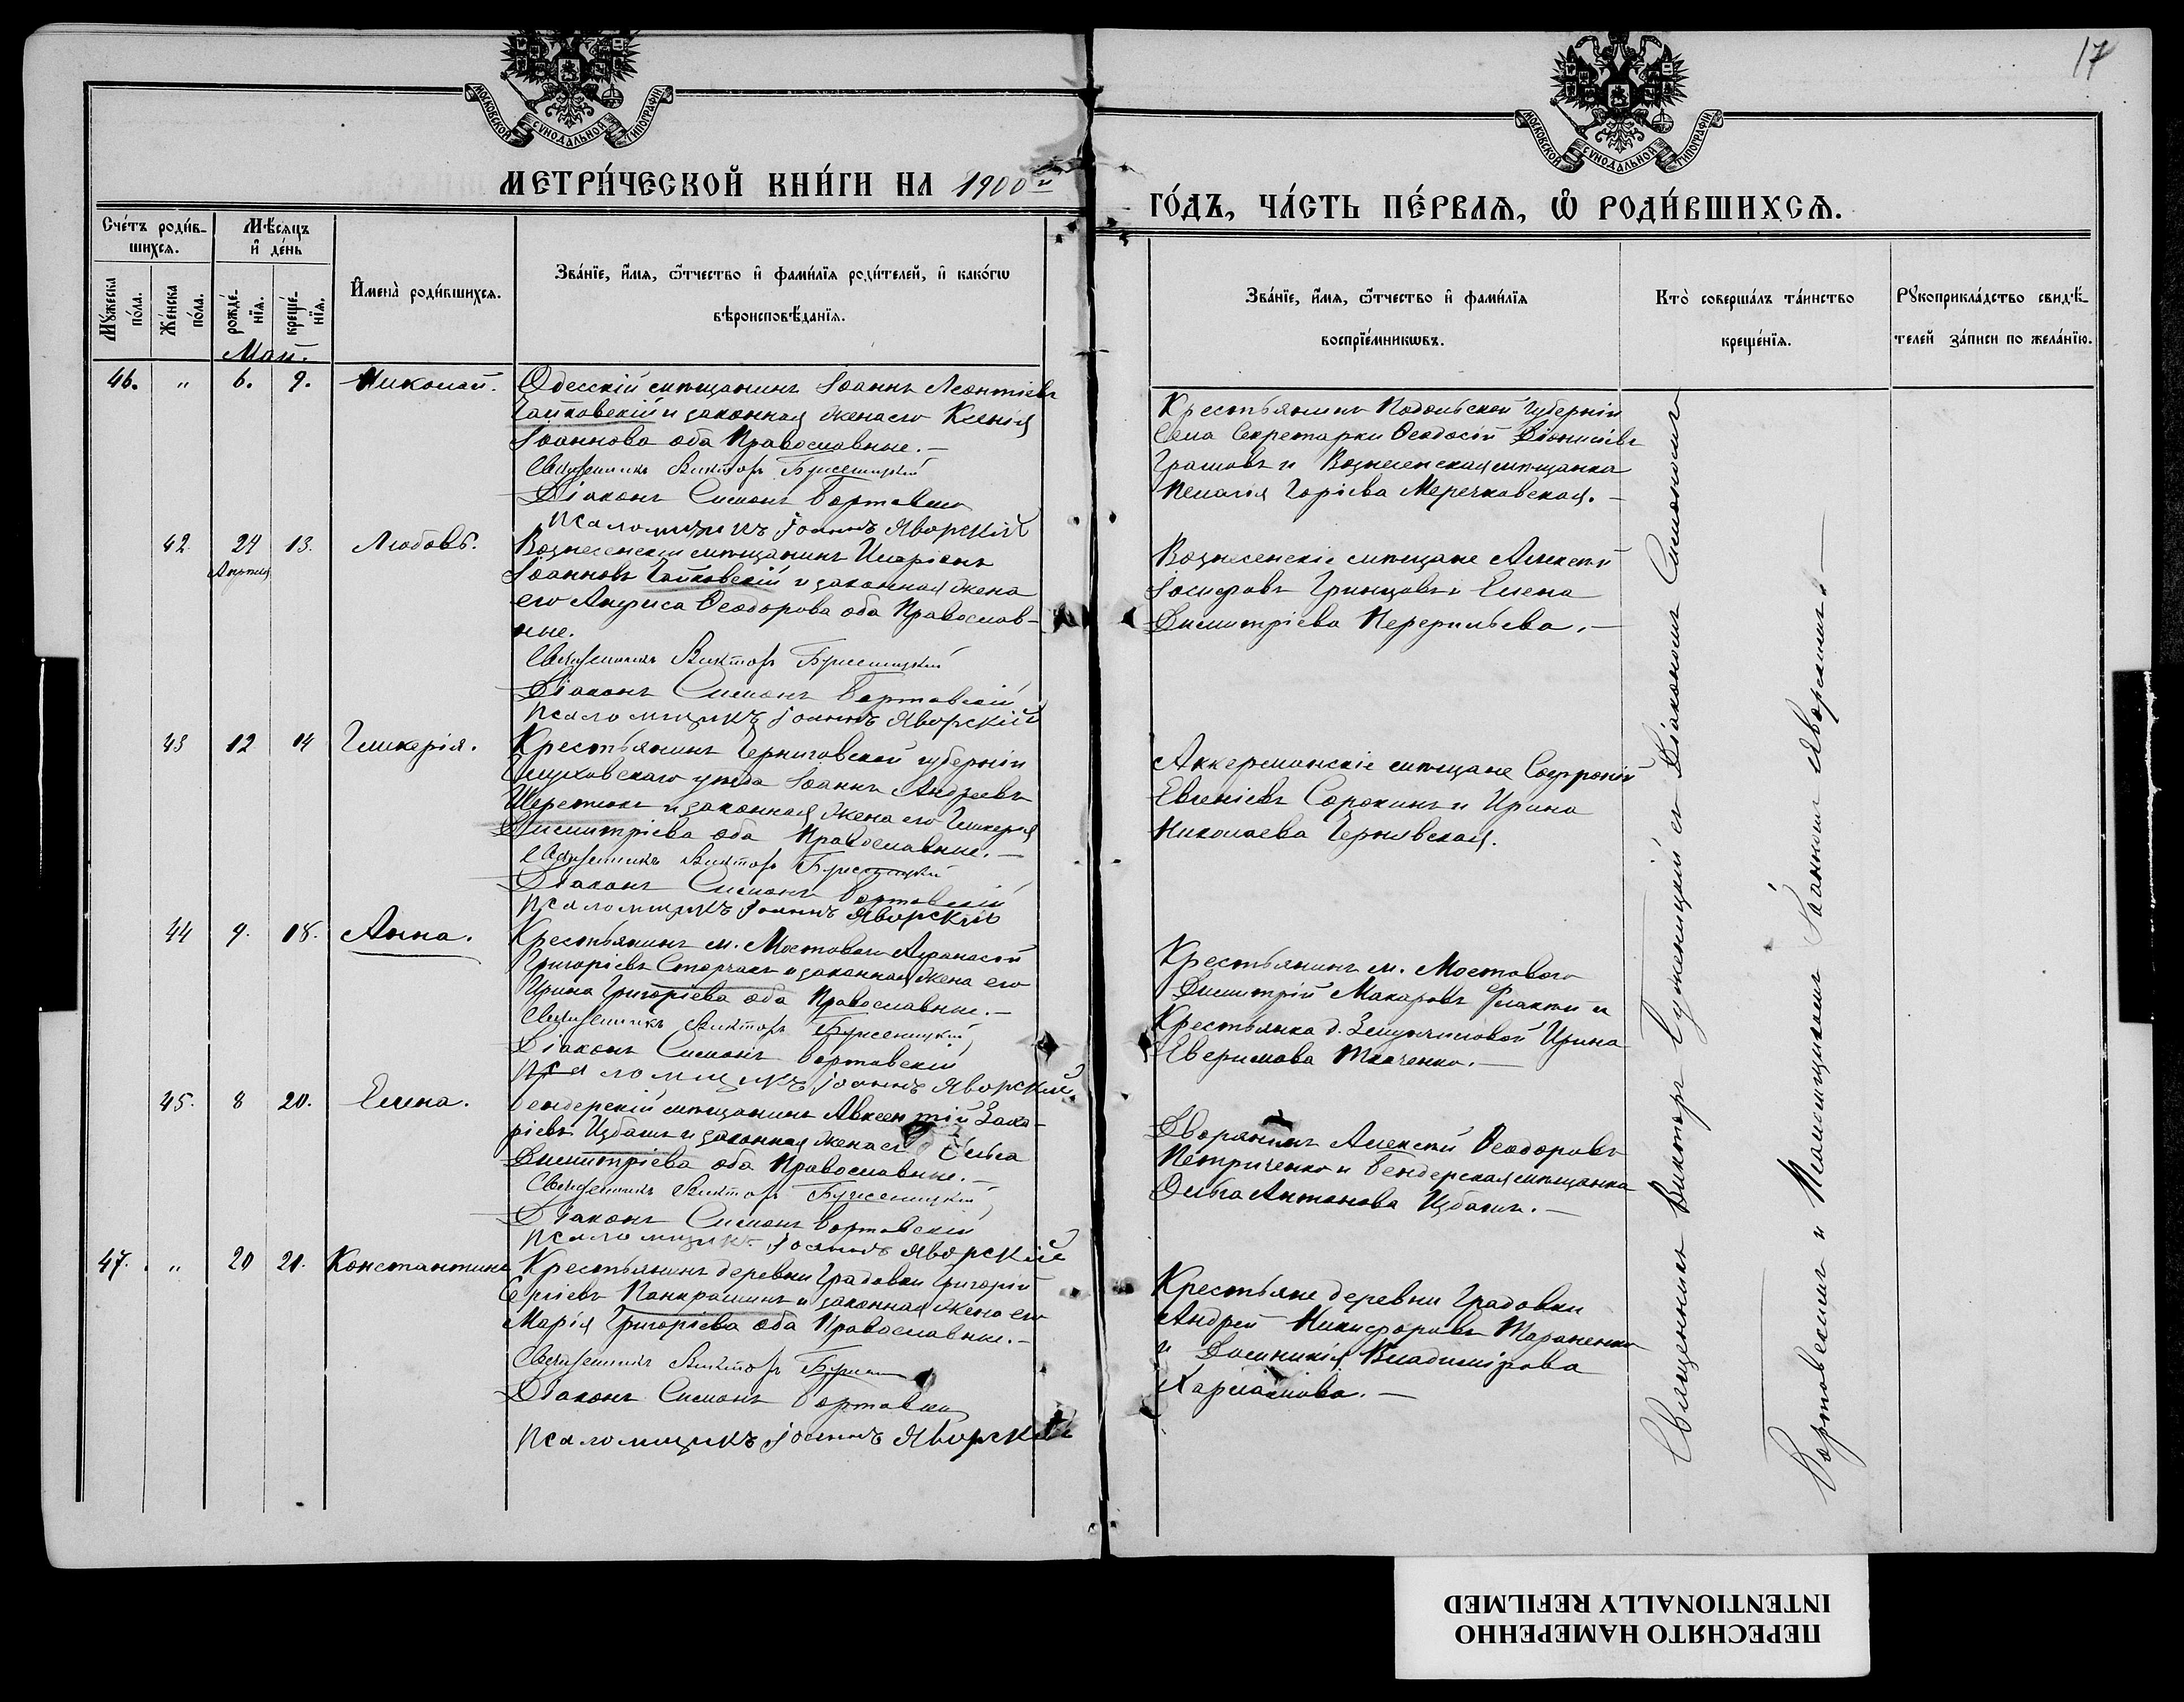 17
МОСКОВСКОЙ СУНОДАЛЬНОЙ ТИПОГРАФІИ
МОСКОВСКОЙ СУНОДАЛЬНОЙ ТИПОГРАФІИ
МЕТРИ́ЧЕСКОЙ КНИ́ГИ НА 1900й
ГО́ДЪ, ЧА́СТЬ ПЕ́РВАѦ, Ѡ РОДИ́ВШИХСѦ.
Сче́тъ роди́в-
шихсѧ.
Мѣ́сѧцъ
и҆ де́нь
Мꙋ́жеска
по́ла.
Же́нска
по́ла.
рожде́-
нїѧ.
креще́-
нїѧ.
И҆мена̀ роди́вшихсѧ.
Зва́нїе, и҆́мѧ, ѻ҆́тчество и҆ фами́лїѧ роди́телей, и҆ како́гѡ
вѣроисповѣ́данїѧ.
Зва́нїе, и҆́мѧ, ѻ҆́тчество и҆ фами́лїѧ
воспрїе́мникѡвъ.
Кто̀ соверша́лъ та́инство
креще́нїѧ.
Рꙋкоприкла́дство свидѣ́-
телей за́писи по жела́нїю.
Май.
46. " 6. 9. Николай.
Одесскій мѣщанинъ Іоаннъ Леонтіевъ
Чайковскій и законная жена его Ксенія
Іоаннова оба Православные.—
Священникъ Викторъ Буженицкій
Діаконъ Симонъ Бортовскій
Псаломщикъ Іоаннъ Яворскій
Крестьянинъ Подольской губерніи
села Секретарки Ѳеодосій Діонисіевъ
и Вознесенская мѣщанка
Пелагія Меречковская.—
42. 24 Апрѣля 13. Любовь.
Вознесенскій мѣщанинъ Иларіонъ
Іоанновъ Чайковскій и законная жена
его Анфиса Ѳеодорова оба Православ-
ные.
Священникъ Викторъ Буженицкій
Діаконъ Симонъ Бортовскій
Псаломщикъ Іоаннъ Яворскій
Вознесенскіе мѣщане Алексѣй
Іосифовъ Гринцовъ и Елена
Димитріева
43 12 14 Гликерія.
Крестьянинъ Черниговской губерніи
Глуховскаго уѣзда Іоаннъ Андреевъ
Шереметъ и законная жена его Гликерія
Димитріева оба Православные.—
Священникъ Викторъ Буженицкій
Діаконъ Симонъ Бортовскій
Псаломщикъ Іоаннъ Яворскій
Аккерманскіе мѣщане Софроній
Евгеніевъ Сорокинъ и Ирина
Николаева Чернявская.
44 9. 18. Анна.
Крестьянинъ м. Мостового Афанасій
Григоріевъ Сторчакъ и законная жена его
Ирина Григоріева оба Православные.—
Священникъ Викторъ Буженицкій
Діаконъ Симонъ Бортовскій
Псаломщикъ Іоаннъ Яворскій
Крестьянинъ м. Мостового
Димитрій Макаровъ и
Крестьянка д. Ирина
Ткаченко.—
45. 8 20. Елена.
Бендерскій мѣщанинъ Авксентій Заха-
ріевъ Избашъ и законная жена его
Димитріева оба Православные.—
Священникъ Викторъ Буженицкій
Діаконъ Симонъ Бортовскій
Псаломщикъ Іоаннъ Яворскій
Дворянинъ Алексѣй Ѳеодоровъ
Петриченко и Бендерская мѣщанка
Ольга Антонова Избашъ.—
47. " 20 21. Константинъ
Крестьянинъ деревни Градовки Григорій
Сергіевъ и законная жена его
Марія Григоріева оба Православные.—
Священникъ Викторъ
Діаконъ Симонъ Бортовскій
Псаломщикъ Іоаннъ Яворскій
Крестьяне деревни Градовки
Андрей Никифоровъ Тараненко
и Домникія Владимірова
Священникъ Викторъ Буженицкій съ Діакономъ Симономъ
Бортовскимъ и Псаломщикомъ Іоанномъ Яворскимъ.—
ПЕРЕСНЯТО НАМЕРЕННО
INTENTIONALLY REFILMED